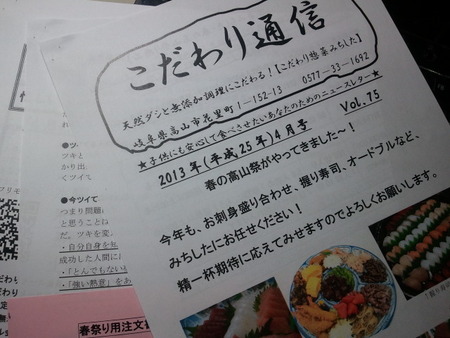 こだわり通信
天然ダシと無添加調理にこだわる!【こだわり惣菜みちした】
岐阜県高山市花里町1-152-13 0577-33-1692
★子供にも安心して食べさせたいあなたのためのニュースレター★
2013年(平成25年)4月号 Vol.75
春の高山祭がやってきました~!
今年も、お刺身盛り合わせ、握り寿司、オードブルなど、
みちしたにお任せください!
精一杯期待に応えてみせますのでよろしくお願いします。
●ツ
ツキと
かり出
くツイて
●今ツイて
つまり問題
と思うことね
だ。ツキを変
・自分自身を
成功した人間に
・「とんでもない
・「強い熱意」をあ
春祭り用注文